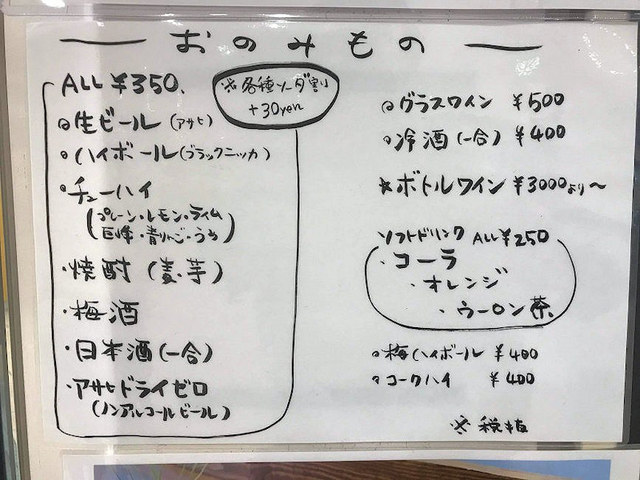 おのみもの
ALL ¥350、
※各種ソーダ割り
+30yen
◎生ビール(アサヒ)
・ハイボール(ブラックニッカ)
・チューハイ
(プレーン・レモン・ライム
巨峰・青りんご・うめ)
・焼酎(麦、芋)
・梅酒
・日本酒(一合)
・アサヒドライゼロ
(ノンアルコールビール)
◎グラスワイン ¥500
◦冷酒(一合) ¥400
★ボトルワイン ¥3000より〜
ソフトドリンク ALL ¥250
・コーラ
・オレンジ
・ウーロン茶
◦梅ハイボール ¥400
◦コークハイ ¥400
※税抜